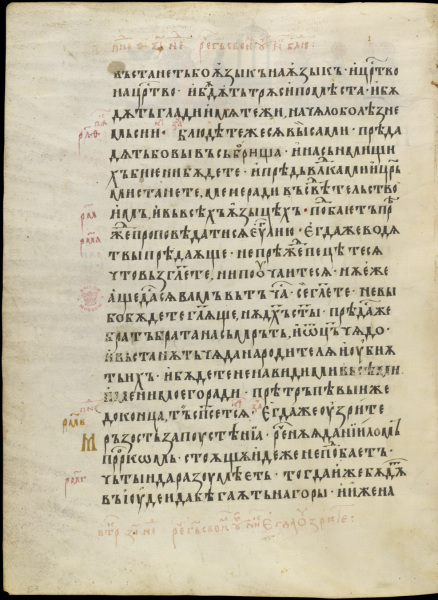 въстанетъ бо ѧзыкъ на ѧзыкъ · и цр҃тво
на цр҃тво · и бѫдѫтъ трѫси по мѣста · и бѫ
дѫтъ глади и мѧтежи, начѧло болѣзне
мь сни · блюдѣте же сѧ вы сами · прѣда
дѧтъ бо вы въ съборища · и на сънмищи
хъ бїени бѫдете · и прѣдъ влⷣками и цр҃ѣ
ми станете, мене ради въ свѣтельство
имъ, и въ всѣхъ ѧзыцѣхъ · побаетъ прⷤѣ
же проповѣдатисѧ еуⷢлїю · Єгда же водѧ
тъ вы прѣдаѫще · не прѣжⷣепецѣте сѧ
что възгл҃ете, ни поучаите сѧ · нѫ еже
аще дастъсѧ вамъ въ тъ чⷭа · се гл҃ете · не вы
бо бѫдете гл҃ѫще, нѫ дх҃ъ ст҃ы · прѣдаⷭ же
братъ брата на съмръть, и ѡц҃ъ чѧдо ·
и въстанѫтъ чѧда на родителѧ и оубиѫ
тъ ихъ · и бѫдете ненавидими всѣми
имени моего ради · прѣтръпѣвыи же
до конца, тъ сп҃сетсѧ · Єгда же оузрите
Мръзость запоустѣнїа · реⷱнѫѧ данїиломъ
прⷪркомъ · стоѫщѫ идеже не поⷣбаетъ ·
чьтыи да разоумѣетъ · тогда иже бѫдѫтъ
въ їоудеи да бѣгаѫтъ на горы · и иже на